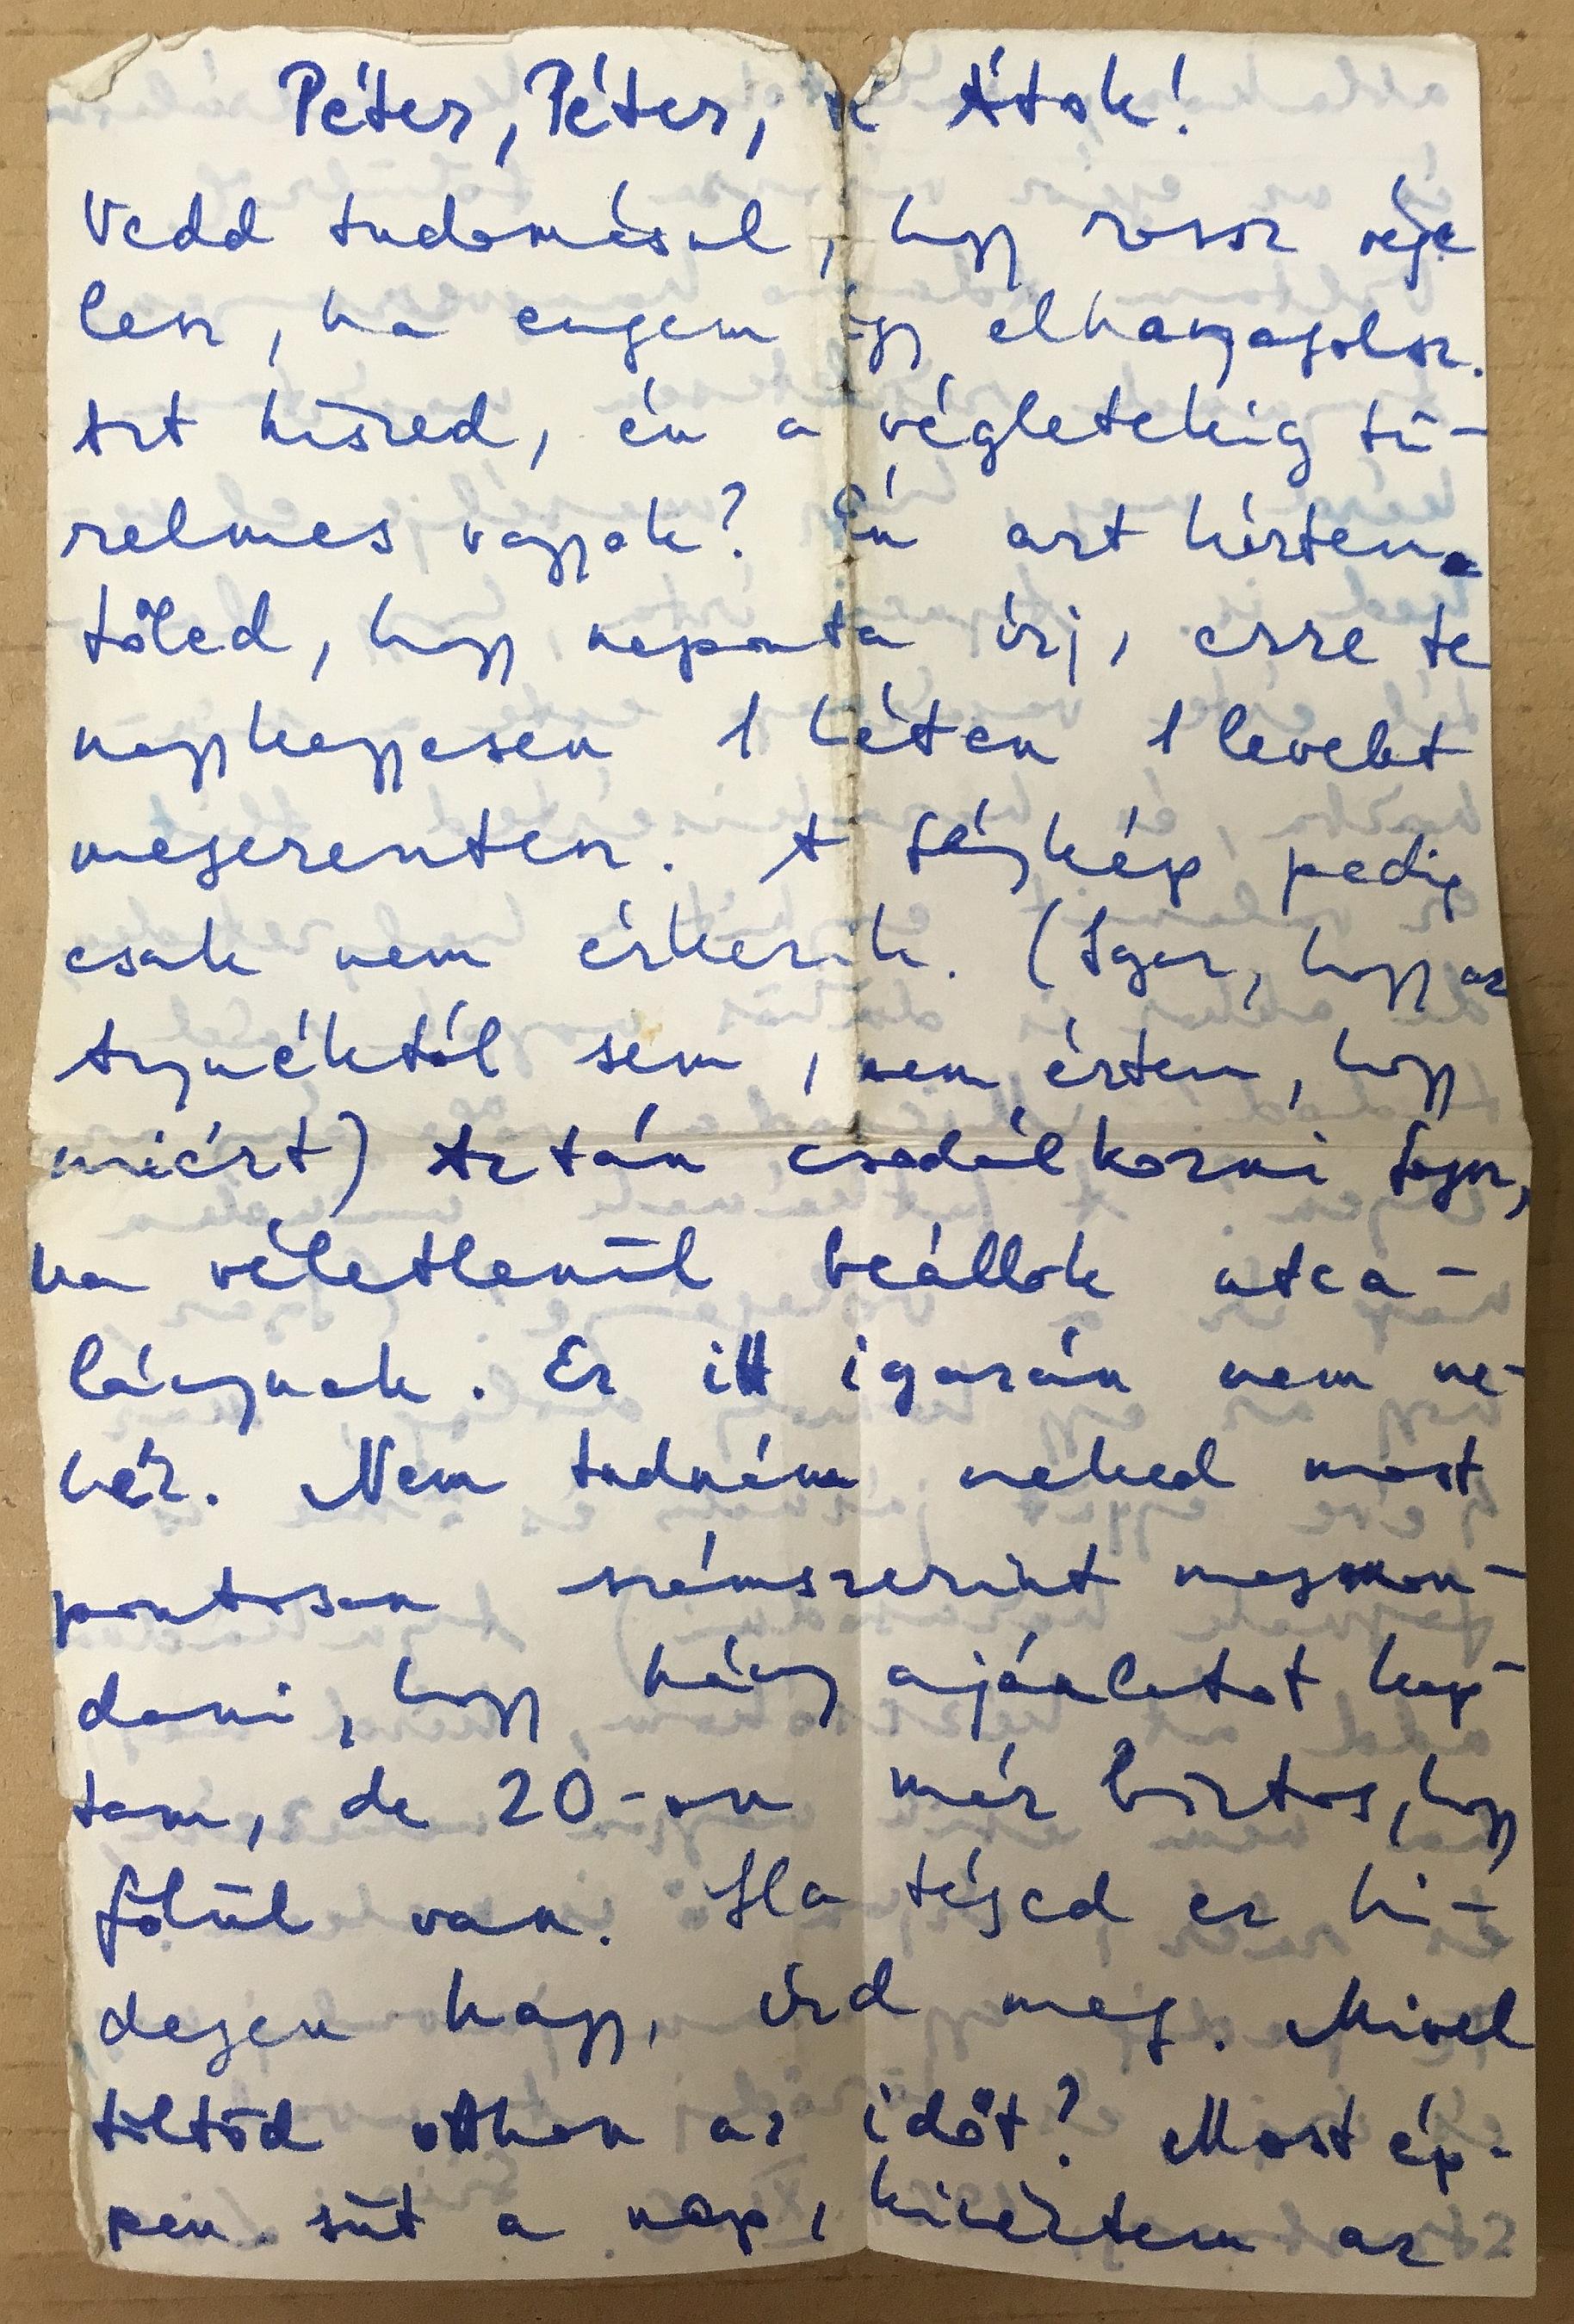 Péter, Péter, te Átok!
Vedd tudomásul, hogy rossz vége
lesz, ha engem így elhanyagolsz.
Azt hiszed, én a végletekig tü-
relmes vagyok? Én azt kértem
tőled, hogy naponta írj, erre te
nagykegyesen 1 héten 1 levelet
megeresztesz. A fénykép pedig
csak nem érkezik. (Igaz, hogy az
Anyuéktól sem, nem értem, hogy
miért) Aztán csodálkozni fogsz,
ha véletlenül beállok utca-
lánynak. Ez itt igazán nem ne-
héz. Nem tudnám neked most
pontosan számszerint megmon-
dani, hogy hány ajánlatot kap-
tam, de 20-on már biztos, hogy
fölül van. Ha téged ez hi-
degen hagy, írd meg. Mivel
töltöd otthon az időt? Most ép-
pen süt a nap, kiültem az